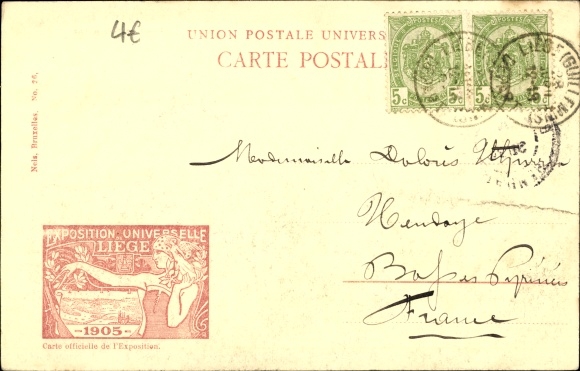 4€
UNION POSTALE UNIVERS
CARTE POSTAL
POSTES POSTES
5c 5c 5c 5c
LIÈGE (GUILLEMINS)
Nels, Bruxelles. No. 26.
Mademoiselle Dolorès
Hendaye
Basses Pyrénées
France
EXPOSITION UNIVERSELLE
LIEGE
1905
Carte officielle de l'Exposition.